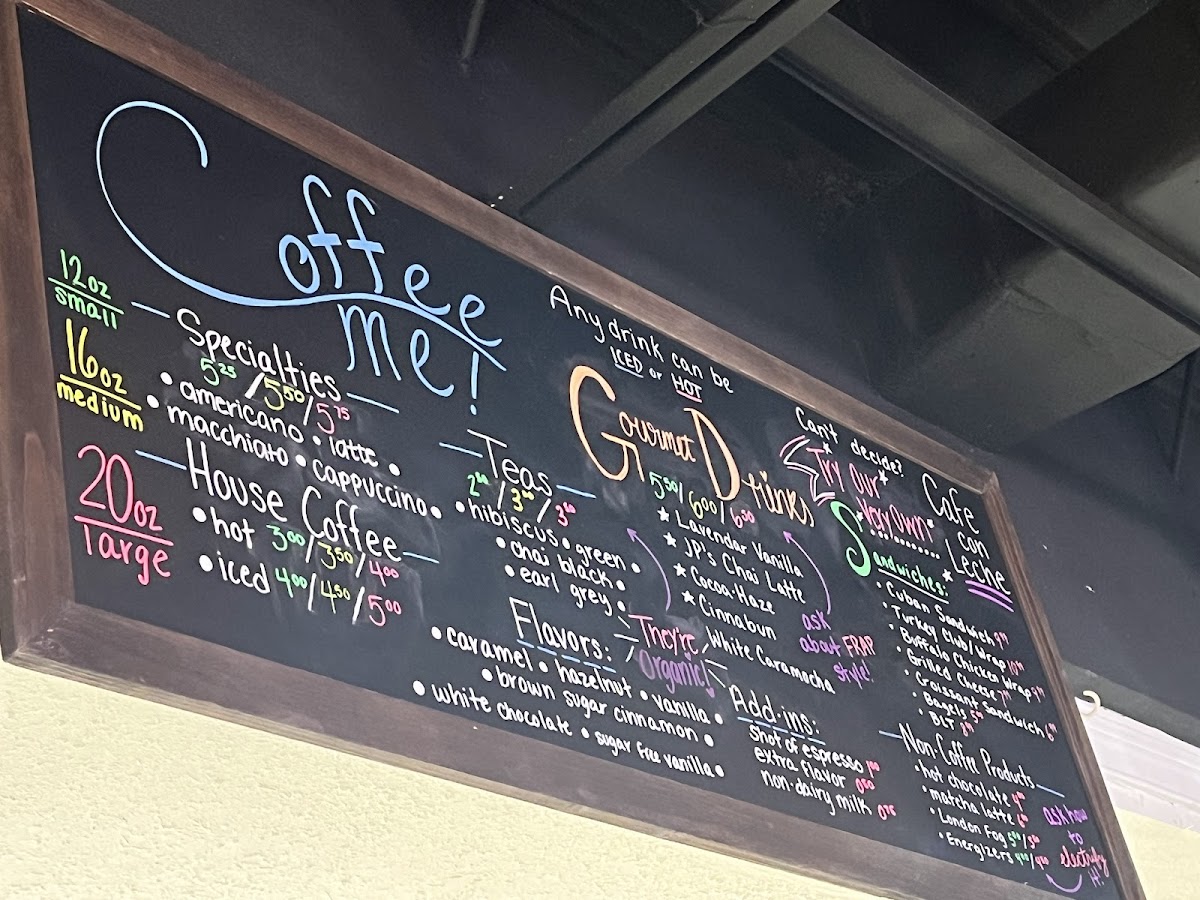 Coffee
me!
12oz
small
16oz
medium
20oz
large
Specialties
5.25 / 5.50 / 5.75
• americano • latte •
• macchiato • cappuccino •
House Coffee
• hot 3.00 / 3.50 / 4.00
• iced 4.00 / 4.50 / 5.00
Teas
/ 3 / 3
• hibiscus • green •
• chai black •
• earl grey •
They're
Organic!
Flavors:
• caramel • hazelnut • vanilla •
• brown sugar cinnamon •
• white chocolate • sugar free vanilla •
Any drink can be
ICED or HOT
Gourmet Drinks
5.50 / 6.00 / 6.50
★ Lavendar Vanilla
★ JP's Chai Latte
★ Cocoa-Haze
★ Cinnabun
White Caramocha
ask
about FRAP
style!
Add-ins:
shot of espresso 1.00
extra flavor 0.50
non-dairy milk 0.75
Can't decide?
Try our
Very Own
Cafe
con
Leche
Sandwiches:
• Cuban Sandwich
• Turkey Club/Wrap
• Buffalo Chicken Wrap
• Grilled Cheese
• Croissant Sandwich
• Bagels
• BLT
Non-Coffee Products
• hot chocolate
• matcha latte
• London Fog
• Energizers
ask how
to
electrify
it!